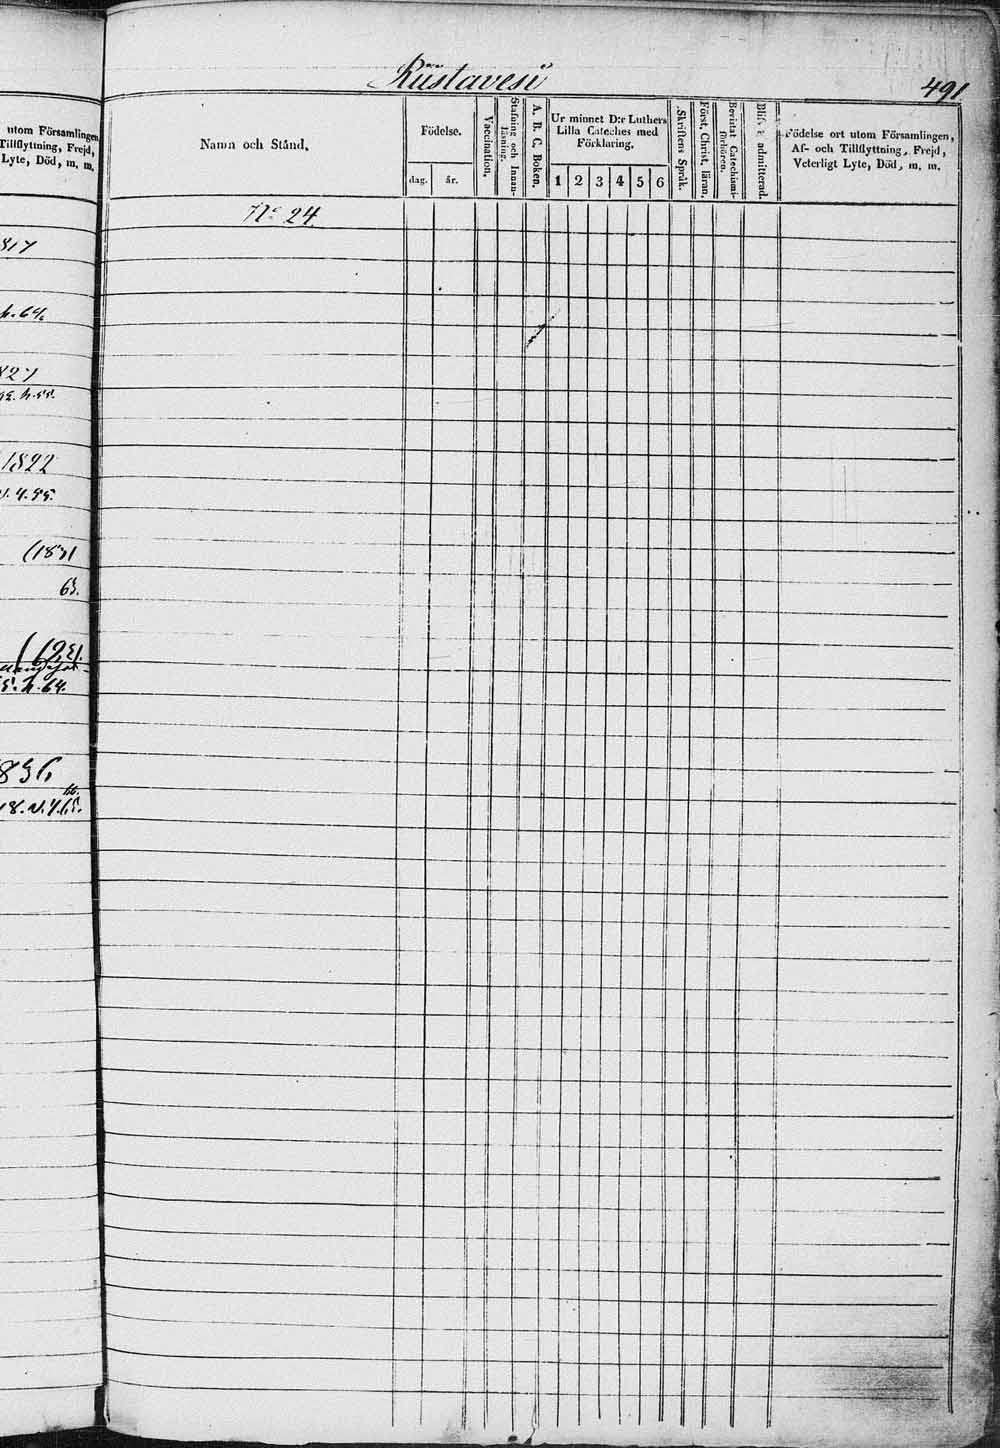 utom Församlingen
Tillflyttning, Frejd,
Lyte, Död, m. m.
817
h. 64.
827
h. 55.
1822
v. 4. 55.
(1831
63.
h. 64.
836
18. v. 4. 65.
Riistavesi
491
Namn och Stånd.
Födelse.
dag.
år.
Vaccination.
Stafning och Innan-
läsning.
A. B. C. Boken.
Ur minnet D:r Luthers
Lilla Cateches med
Förklaring.
1 2 3 4 5 6
Skriftens Språk.
Först. Christ. läran.
Bevistat Catechismi-
förhören.
Blifv. admitterad.
Födelse ort utom Församlingen,
Af- och Tillflyttning, Frejd,
Veterligt Lyte, Död, m. m.
No 24.